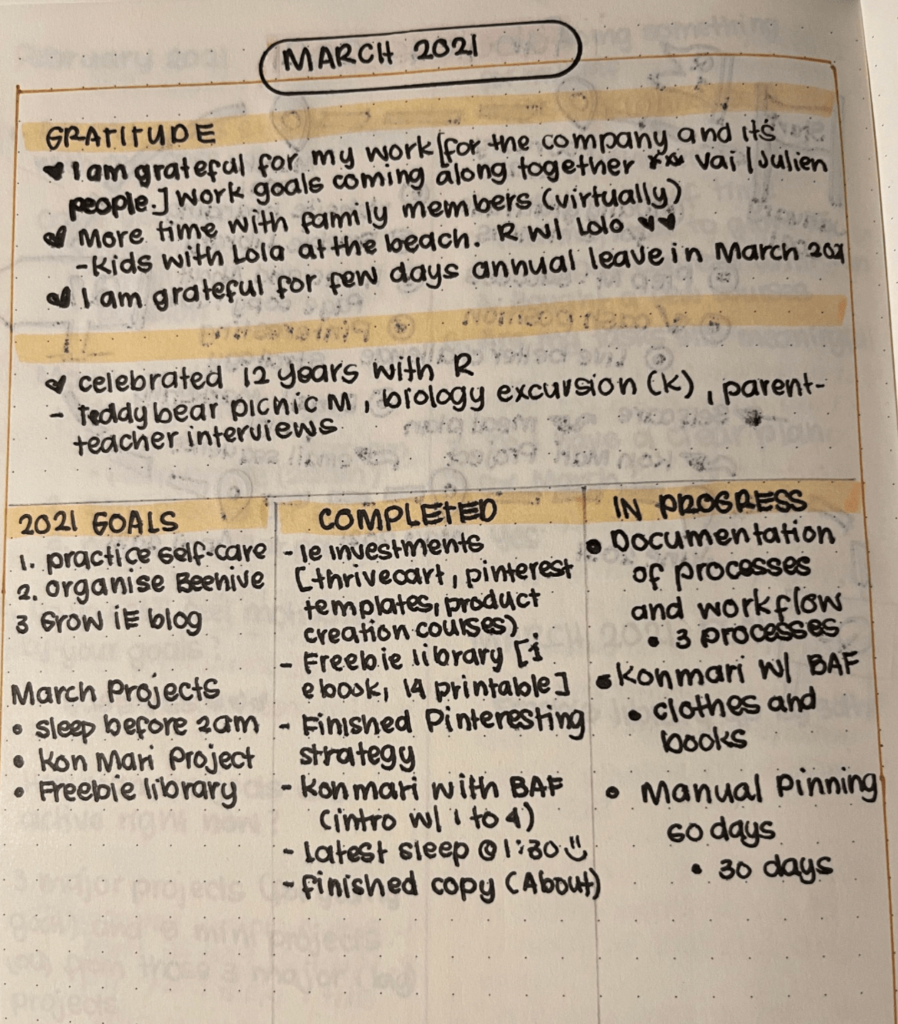 MARCH 2021
GRATITUDE
I am grateful for my work [for the company and its
people.] work goals coming along together vai / Julien
More time with family members (virtually)
- Kids with Lola at the beach. R w/ Lolo ♥♥
I am grateful for few days annual leave in March 2021
celebrated 12 years with R
- Teddy bear picnic M, biology excursion (K), parent-
teacher interviews
2021 GOALS
1. practice self-care
2. organise Beehive
3 Grow iE blog
March Projects
• sleep before 2am
• Kon Mari Project
• Freebie library
COMPLETED
- Ie investments
[thrivecart, pinterest
templates, product
creation courses)
- Freebie library [1
ebook, 14 printable]
- Finished Pinteresting
strategy
- konmari with BAF
(intro w/ 1 to 4)
- Latest sleep @ 1:30
- finished copy (About)
IN PROGRESS
• Documentation
of processes
and workflow
• 3 processes
• Konmari w/ BAF
• clothes and
books
• Manual Pinning
60 days
• 30 days